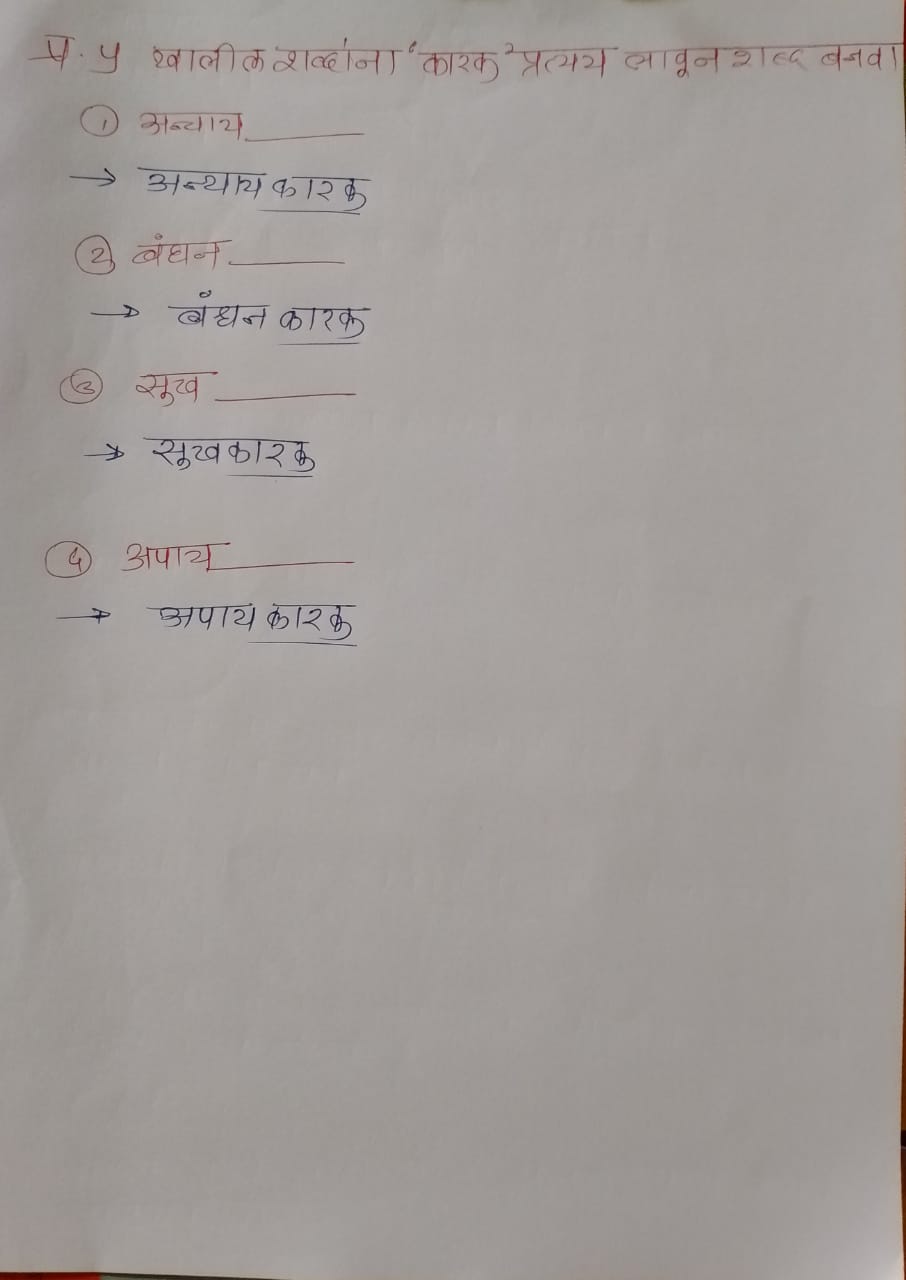 प्र. ५ खालील शब्दांना 'कारक' प्रत्यय लावून शब्द बनवा
① अन्याय ______
→ अन्याय कारक
② बंधन ______
→ बंधन कारक
③ सूख ______
→ सूखकारक
④ अपाय ______
→ अपाय कारक